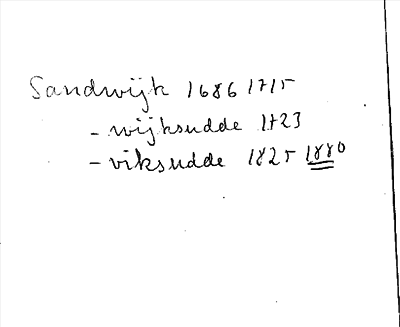 Sandwijk 1686 1715
- wijksudde 1723
- viksudde 1825 1880